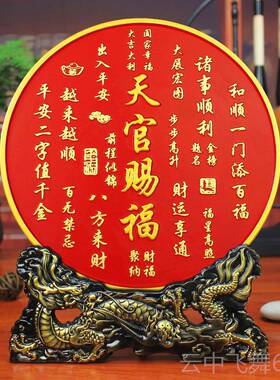 和顺一门添百福
诸事顺利
金榜
题名
福星高照
大展宏图
步步高升
财运亨通
国家幸福
大吉大利
天官赐福
财福
聚纳
出入平安
前程似锦
八方来财
越来越顺
百无禁忌
平安二字值千金
云中飞舞6